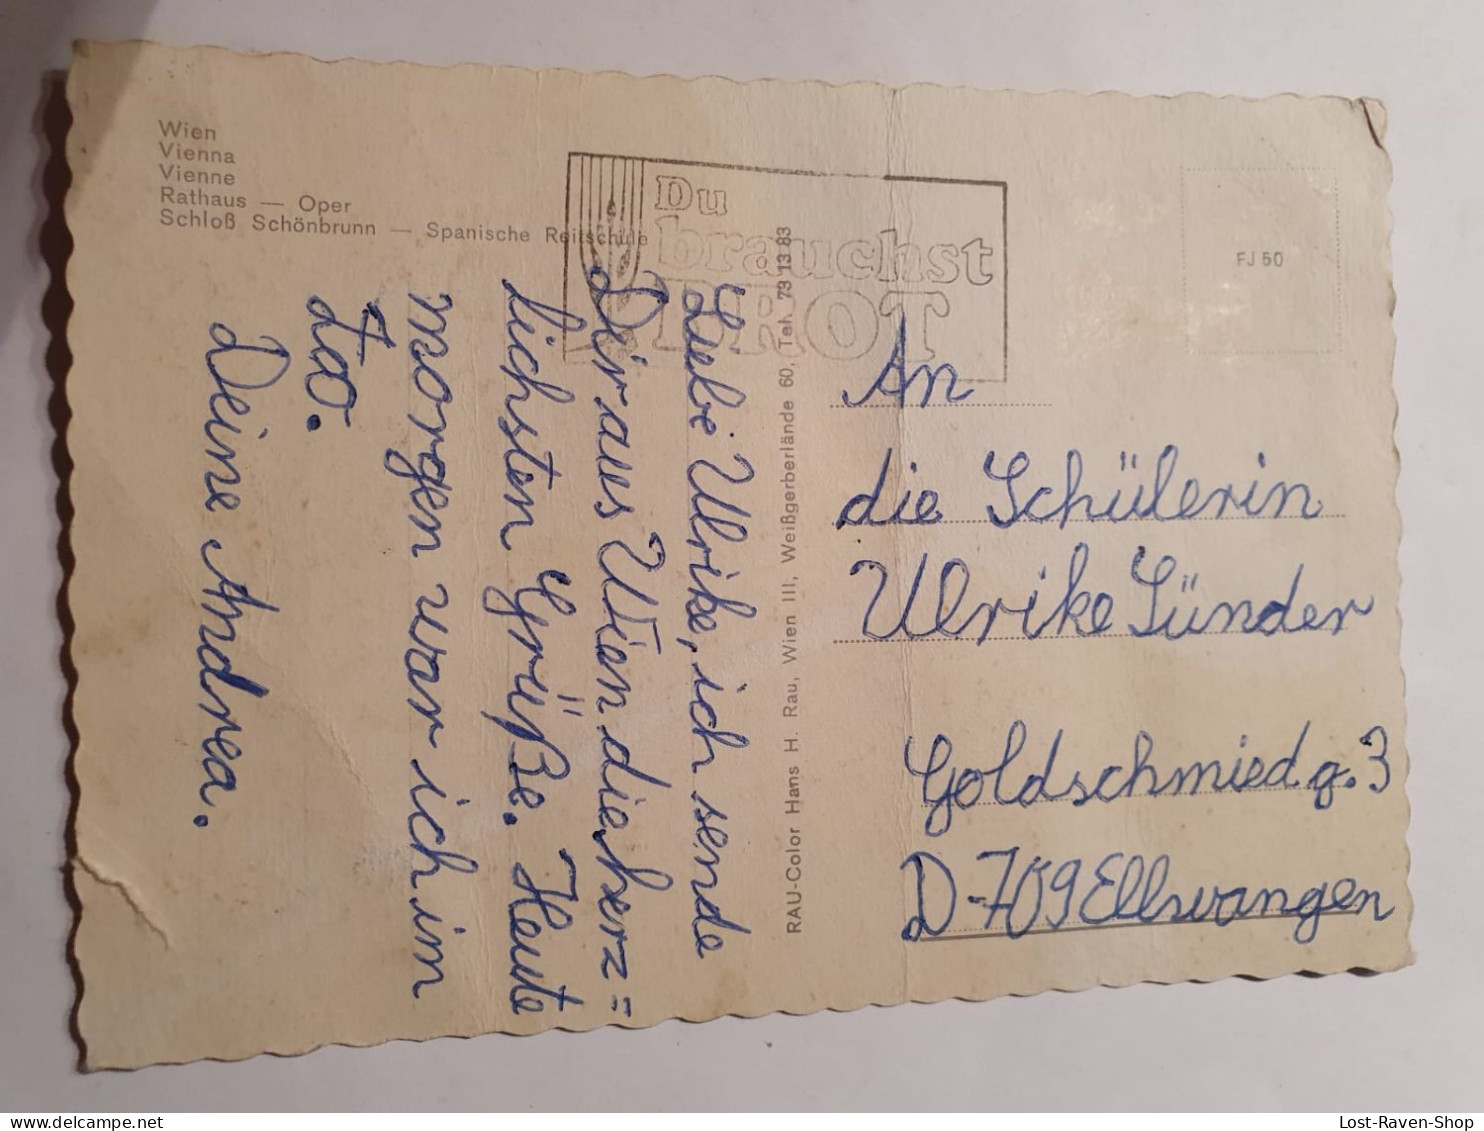 Wien
Vienna
Vienne
Rathaus — Oper
Schloß Schönbrunn — Spanische Reitschule
Du
brauchst
BROT
FJ 50
Liebe Ulrike, ich sende
Dir aus Wien die herz=
lichsten Grüße. Heute
morgen war ich im
Zoo.
Deine Andrea.
RAU-Color Hans H. Rau, Wien III, Weißgerberlände 60, Tel. 73 13 83
An
die Schülerin
Ulrike Sünder
Goldschmiedg. 3
D-709 Ellwangen
Lost-Raven-Shop
delcampe.net